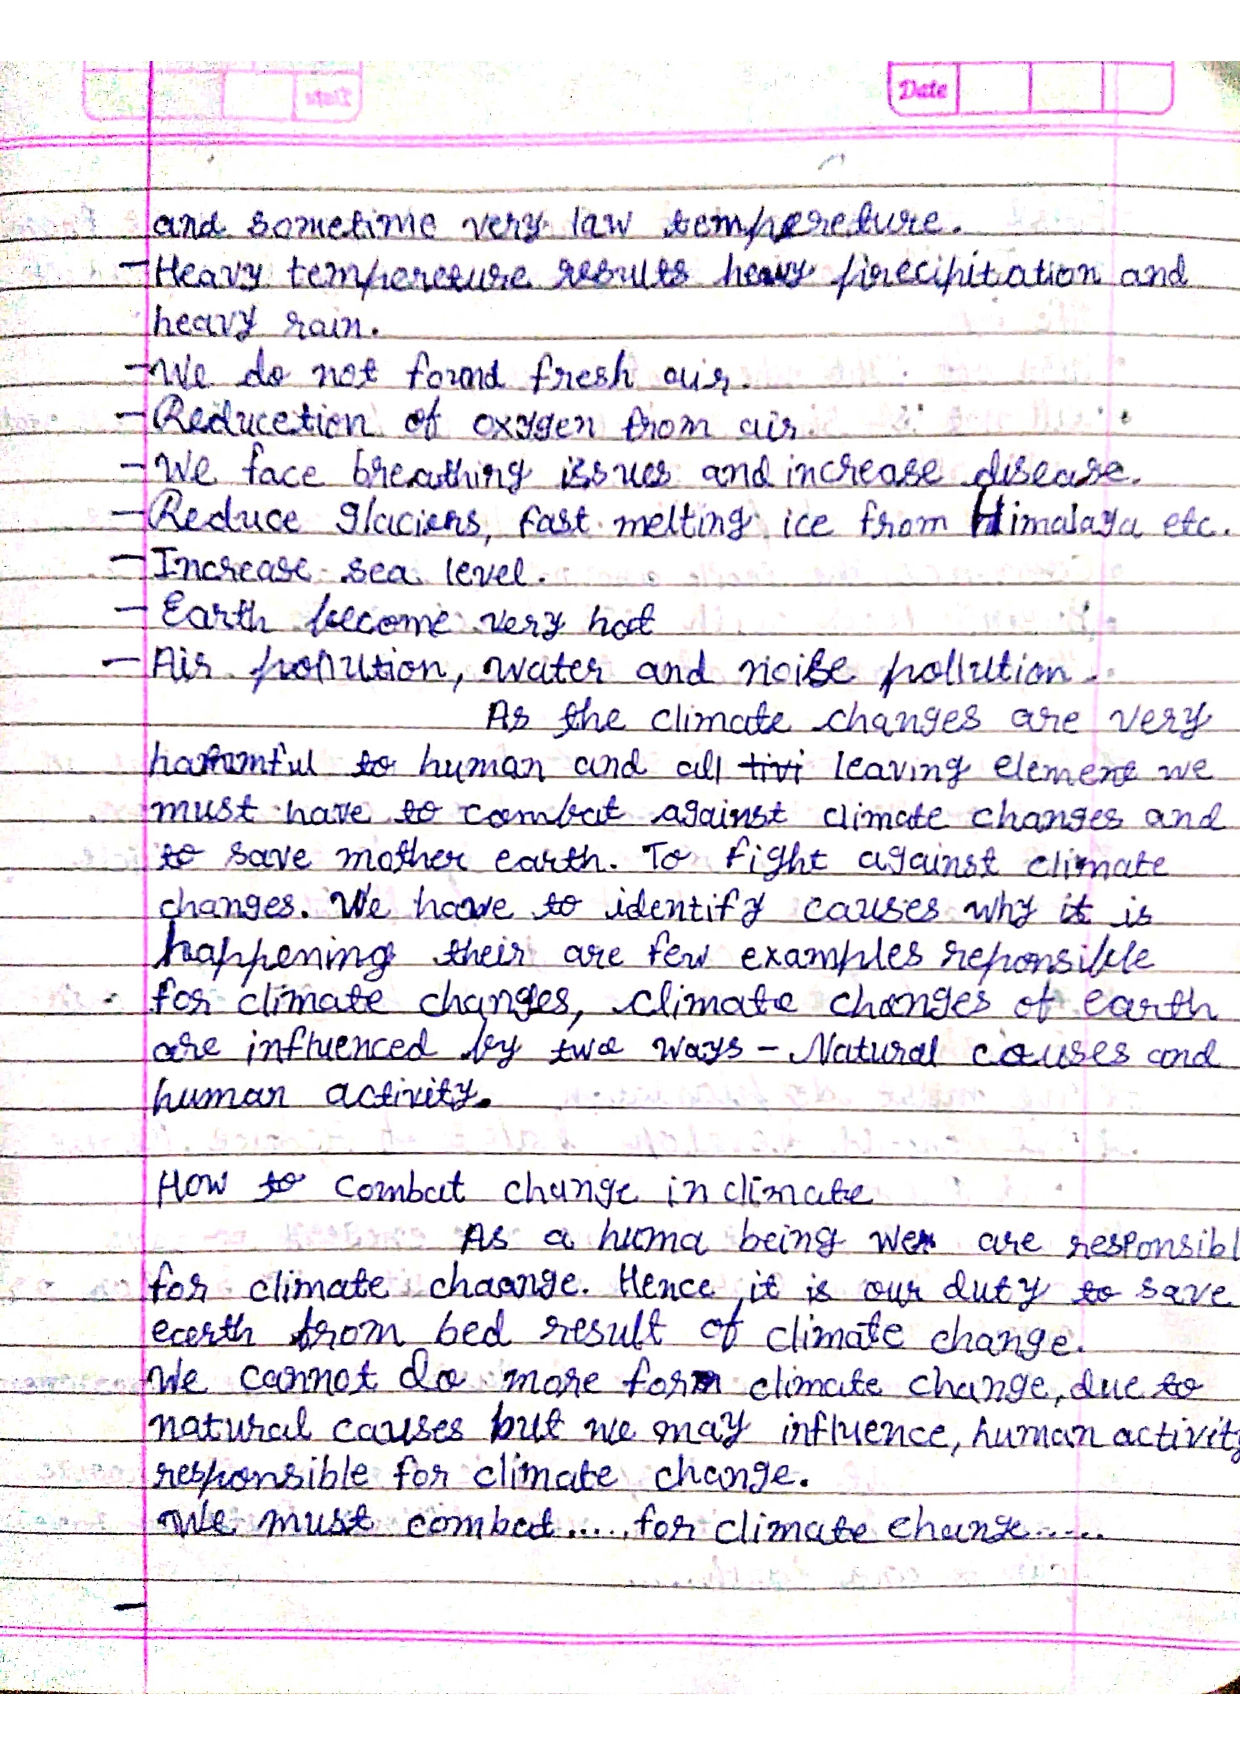 Date
and sometime very law temperedure.
- Heavy tempereture results heavy precipitation and
heavy rain.
- We do not found fresh air.
- Reducetion of oxygen from air.
- We face breathing issues and increase disease.
- Reduce glaciers, fast melting ice from Himalaya etc.
- Increase sea level.
- Earth become very hot
- Air pollution, water and noise pollution.
As the climate changes are very
harmful to human and all tivi leaving element we
must have to combat against climate changes and
to save mother earth. To fight against climate
changes. We have to identify causes why it is
happening their are few examples reponsible
for climate changes, climate changes of earth
are influenced by two ways - Natural causes and
human activity.
How to combat change in climate
As a huma being we are responsibl
for climate chaange. Hence it is our duty to save
ecerth from bed result of climate change.
We cannot do more for climate change, due to
natural causes but we may influence, human activity
responsible for climate change.
We must combat..... for climate change.....
-